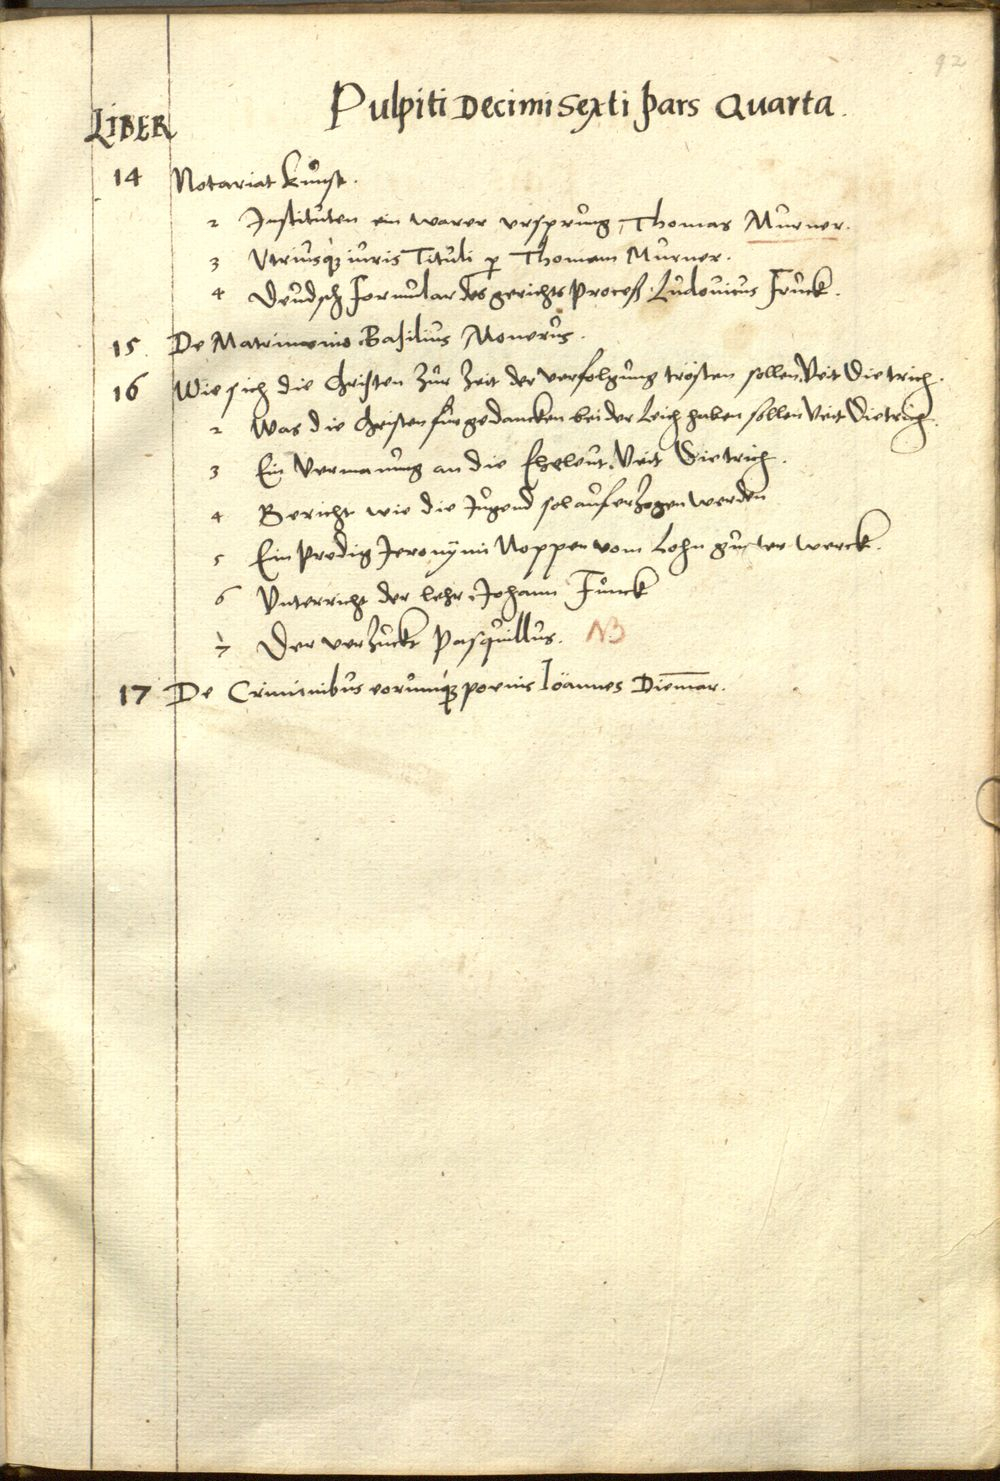 92
Pulpiti Decimi Sexti Pars Quarta.
LIBER
14 Notariat kunst.
2 Instituten ein warer ursprung, Thomas Murner.
3 Utriusq; iuris Tituli p Thomam Murner.
4 Deudsch formular des gerichts Proceß Ludovicus Fruck.
15 De Matrimonio Basilius Monerus.
16 Wie sich die Christen zur zeit der verfolgung trösten sollen. Veit Dietrich.
2 Was die Christen für gedancken bei der Leich haben sollen Veit Dietrich.
3 Ein Vermanung an die Eheleut. Veit Dietrich.
4 Bericht wie die Jugend sol auferzogen werden
5 Ein Predig Jeronymi Noppen vom Lohn guter werck.
6 Unterricht der lehr. Johann Funck
7 Der verzuckt Pasquillus. NB
17 De Criminibus eorumq; poenis Ioannes Diemar.